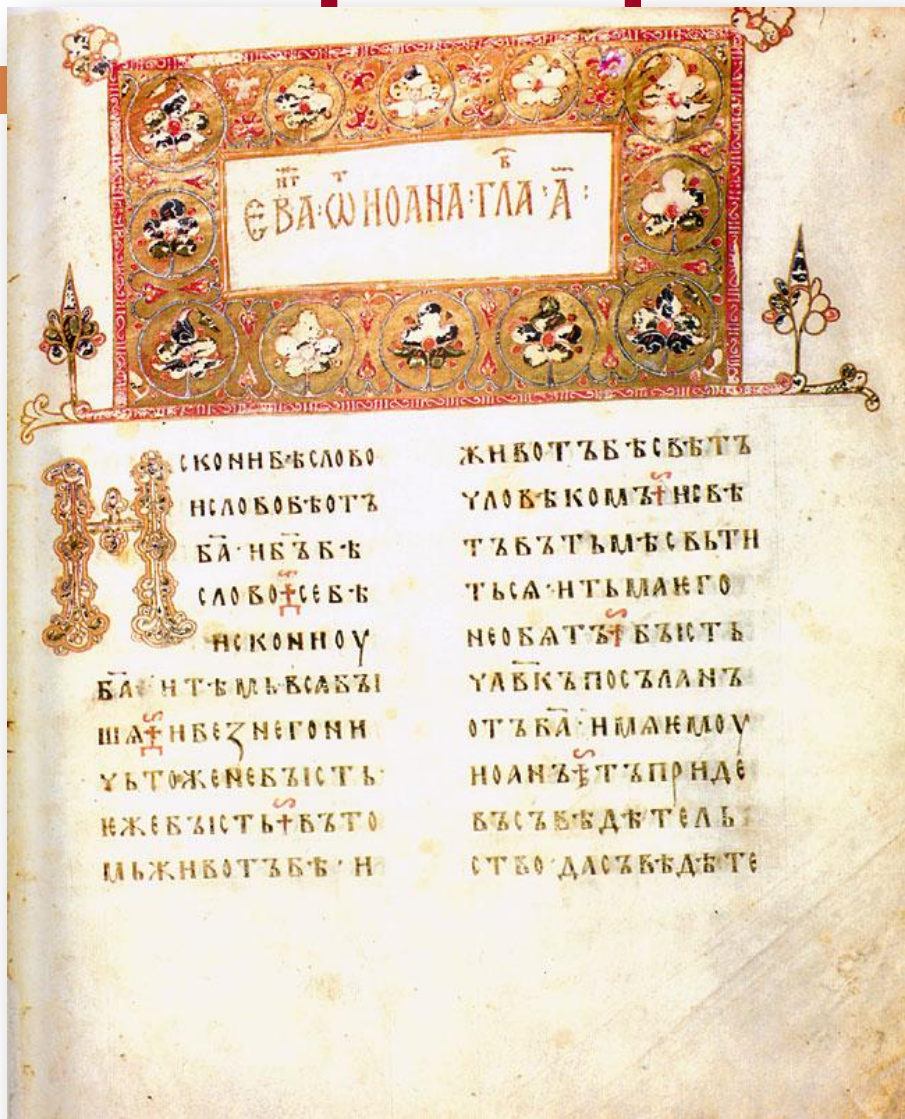 ЄВАⷩ҇Г · Ѿ ИОАНА : ГЛАⷡ҇ · А҃ :
ИСКОНИ БѢ СЛОВО
И СЛОВО БѢ ОТЪ
БА҃ · И БЪ҃ БѢ
СЛОВО СЕ БѢ
ИСКОНИ ОУ
БА҃ · И ТѢМЬ ВСѦ БꙐ
ШѦ И БЕЗ НЕГО НИ
ЧЬТОЖЕ НЕ БꙐСТЬ ·
ѤЖЕ БꙐСТЬ ВЪ ТО
МЬ ЖИВОТЪ БѢ · И
ЖИВОТЪ БѢ СВѢТЪ
ЧЛОВѢКОМЪ И СВѢ
ТЪ ВЪ ТЬМѢ СВЬТИ
ТЬСѦ · И ТЬМА ѤГО
НЕ ОБѦТЪ БꙐСТЬ
ЧЛ҃ВКЪ ПОСЪЛАНЪ
ОТЪ БА҃ · ИМѦ ѤМОУ
ИОАНЪ ТЪ ПРИДЕ
ВЪ СЪВѢДѢТЕЛЬ
СТВО · ДА СЪВѢДѢТЕ